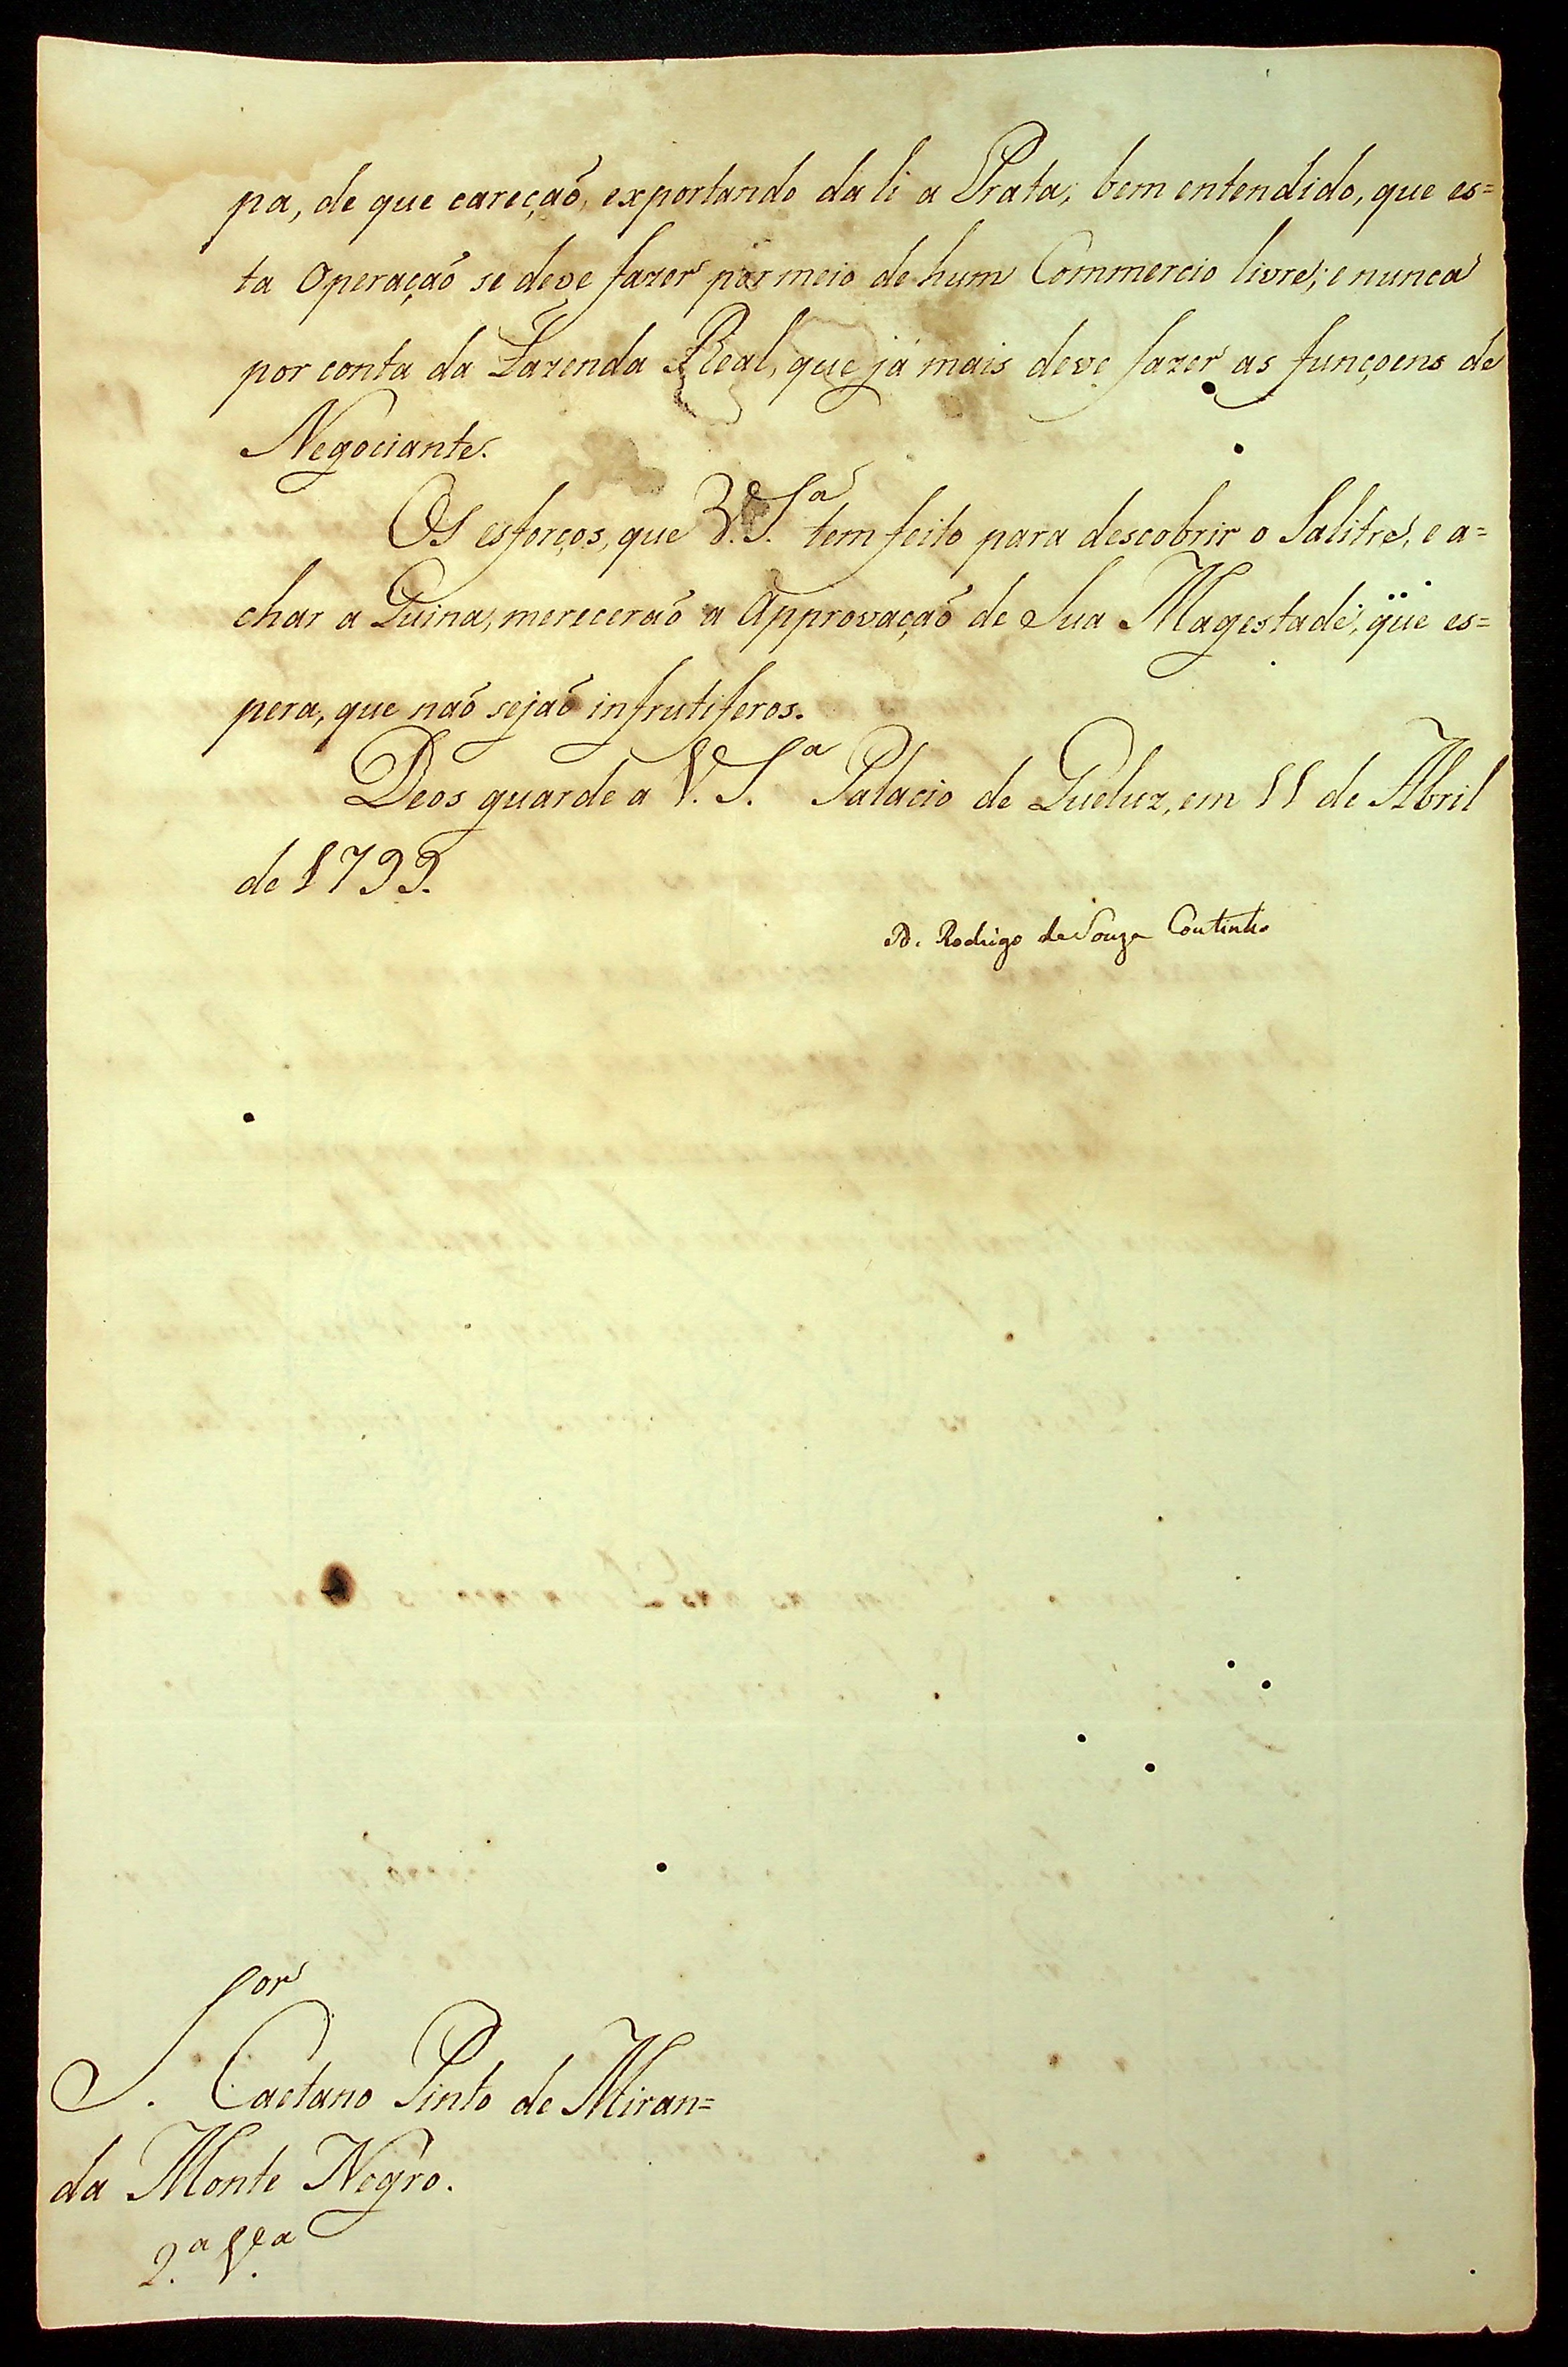 pa, de que careçaõ, exportando da li a Prata; bem entendido, que es=
ta Operaçaõ se deve fazer por meio de hum Commercio livre; e nunca
por conta da Fazenda Real, que já mais deve fazer as funçoens de
Negociante.
Os esforços, que V. S.ª tem feito para descobrir o Salitre, e a=
char a Quina, mereceraõ a Approvaçaõ de Sua Magestade, que es=
pera, que naõ sejaõ infrutiferos.
Deos guarde a V. S.ª Palacio de Queluz, em 11 de Abril
de 1799.
D. Rodrigo de Souza Coutinho
S.or Caetano Pinto de Miran=
da Monte Negro.
2.ª V.ª